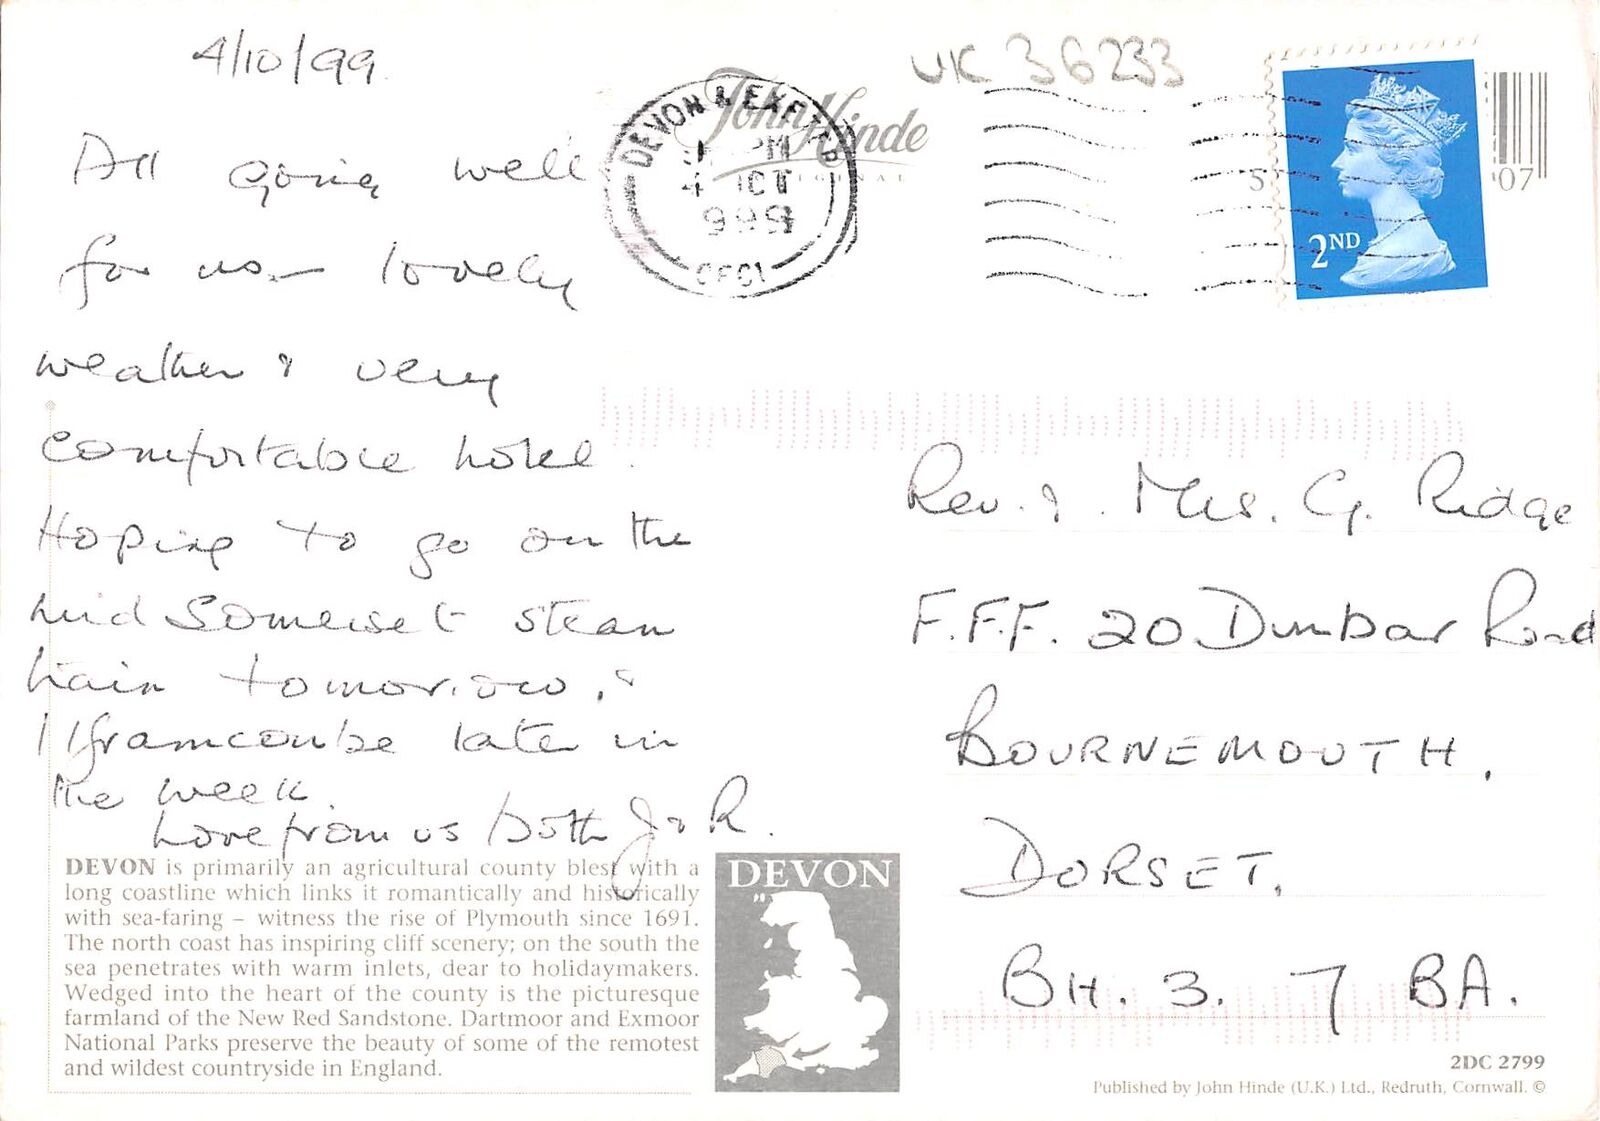 4/10/99
All going well
for us - lovely
weather & very
comfortable hotel.
Hoping to go on the
mid Somerset steam
train tomorrow, &
Ilframcombe later in
the week.
Love from us both J & R.
DEVON is primarily an agricultural county blest with a
long coastline which links it romantically and historically
with sea-faring – witness the rise of Plymouth since 1691.
The north coast has inspiring cliff scenery; on the south the
sea penetrates with warm inlets, dear to holidaymakers.
Wedged into the heart of the county is the picturesque
farmland of the New Red Sandstone. Dartmoor and Exmoor
National Parks preserve the beauty of some of the remotest
and wildest countryside in England.
DEVON
John Hinde
ORIGINAL
DEVON & EXETER
PM
4 OCT
UK 36233
2ND
5
07
Rev. & Mrs. G. Ridge
F.F.F. 20 Dunbar Road
BOURNEMOUTH.
DORSET.
BH. 3. 7 BA.
2DC 2799
Published by John Hinde (U.K.) Ltd., Redruth, Cornwall. ©